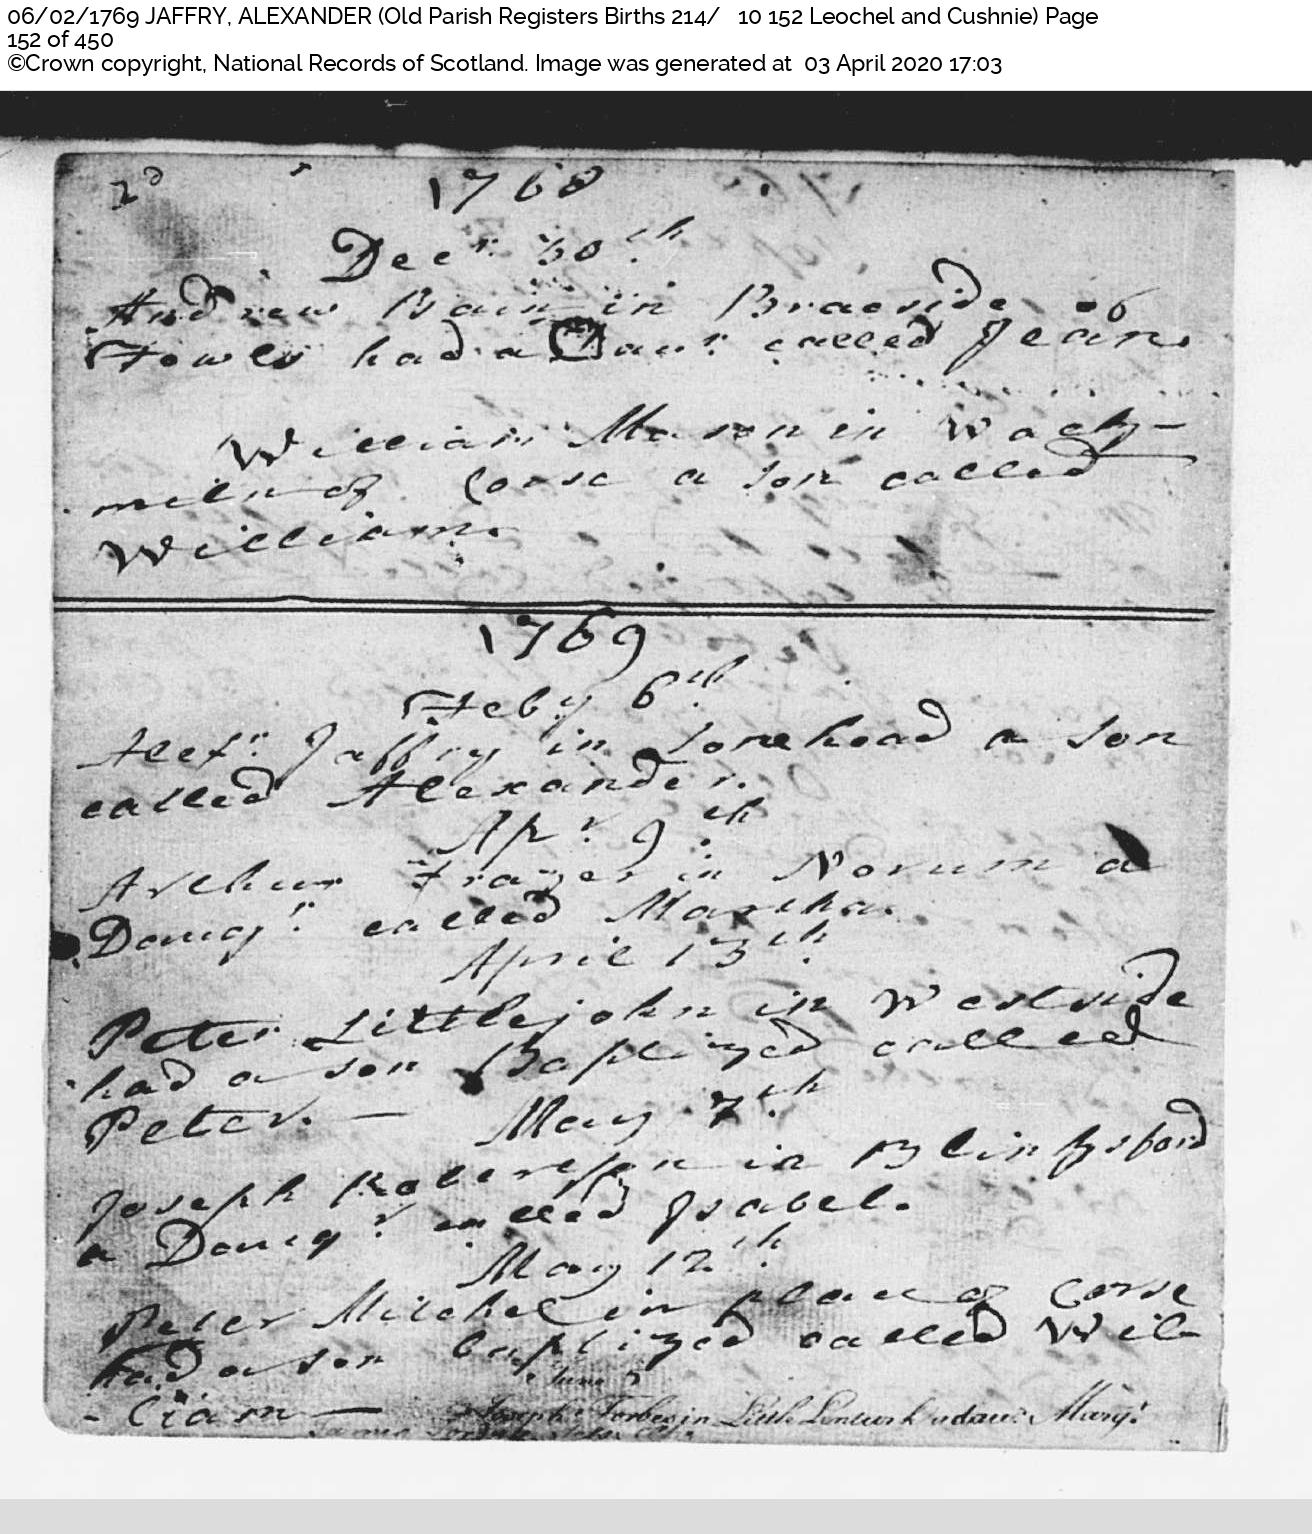 06/02/1769 JAFFRY, ALEXANDER (Old Parish Registers Births 214/ 10 152 Leochel and Cushnie) Page
152 of 450
©Crown copyright, National Records of Scotland. Image was generated at 03 April 2020 17:03
1768
Decr. 30th
Andrew Bain in Braeside of
Fowls had a Daur. called Jean.
William Mason in
miln of Corse a son called
William.
1769
Feby 6th
Alexr. Jaffry in a son
called Alexander.
Apr. 9th
Arthur Frazer in Norum a
Dougr. called Martha.
April 13th
Peter Littlejohn in Westside
had a son Baptized called
Peter. — May 7th
Joseph Robertson in
a Dougr. called Isabel.
May 12th
Peter Mitchel in place of Corse
had a son baptized called Wil
-liam —
June
Joseph Forbes in Little Lenturk a daur. Mary.